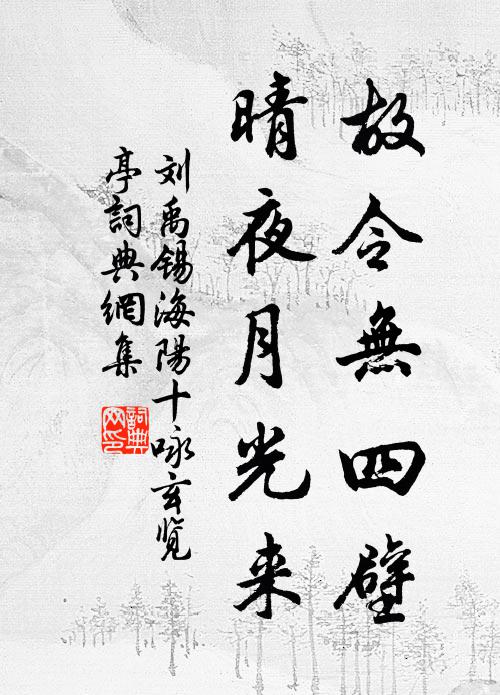 故令無四壁
晴夜月光来
刘禹锡海陽十咏玄览
亭詞典網集
詞典
网印